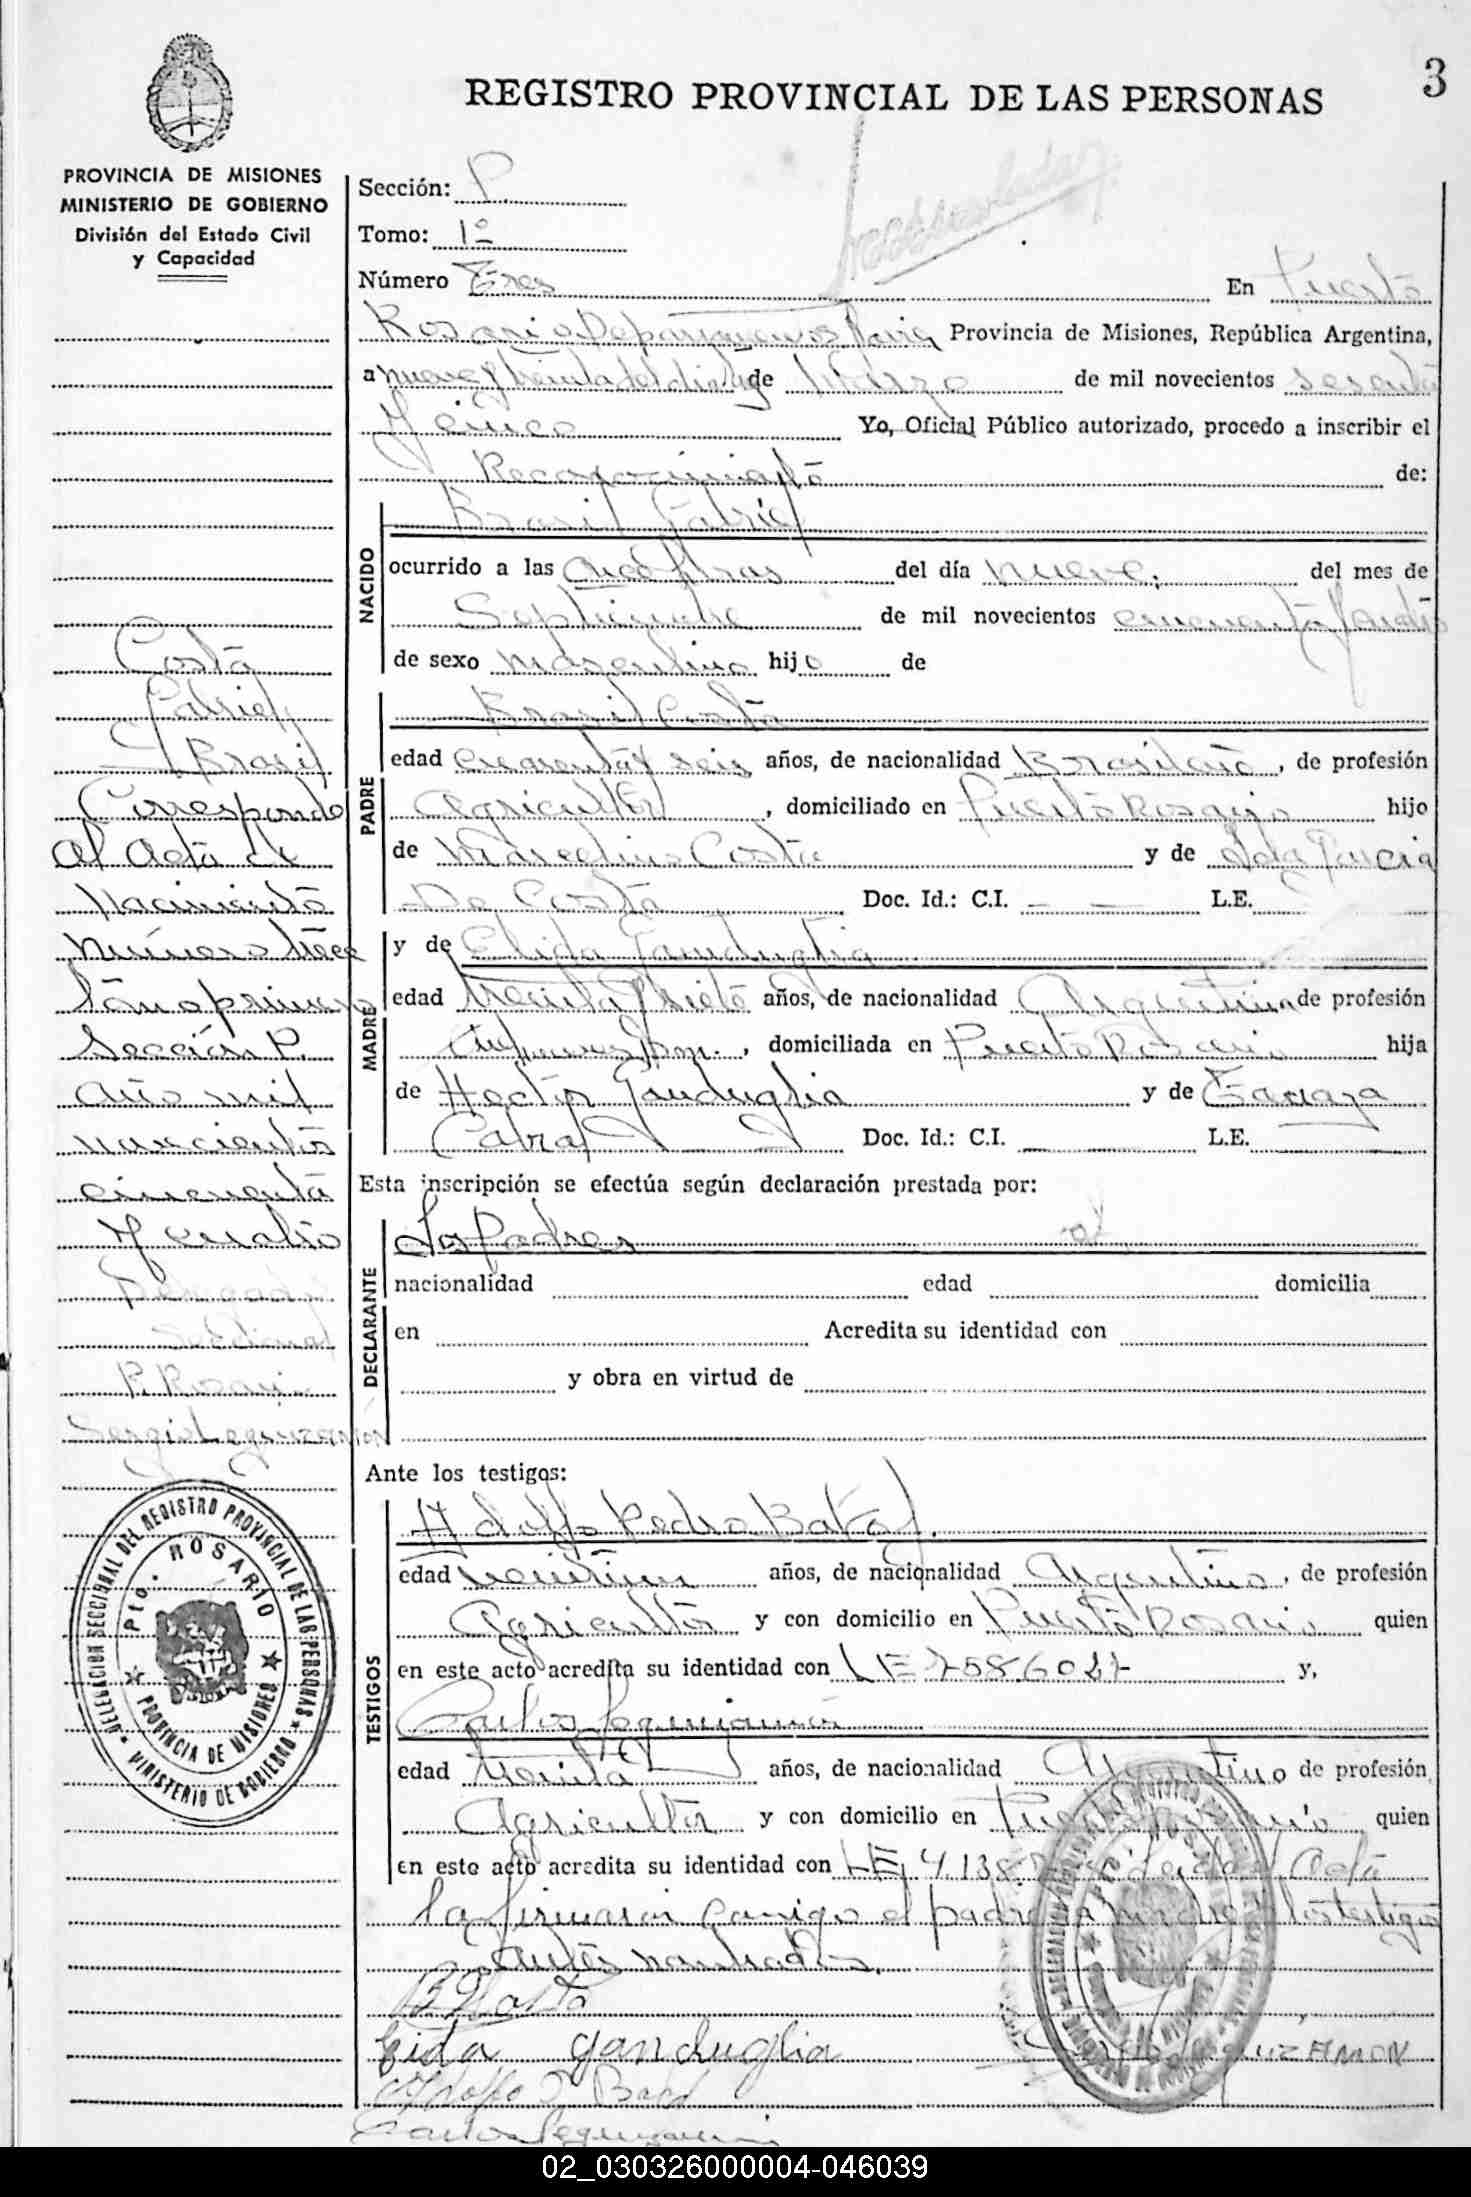 REGISTRO PROVINCIAL DE LAS PERSONAS
3
PROVINCIA DE MISIONES
MINISTERIO DE GOBIERNO
División del Estado Civil
y Capacidad
Costa
Gabriel
Brasil
Corresponde
al acta de
Nacimiento
número trece
tomo primero
Sección P.
año mil
novecientos
cincuenta
y cuatro
Seccional
P. Rosario
Sergio Leguizamon
DELEGACION SECCIONAL DEL REGISTRO PROVINCIAL DE LAS PERSONAS
Pto. ROSARIO
PROVINCIA DE MISIONES
MINISTERIO DE GOBIERNO
Sección: P.
Tomo: 1º
Número Tres En Puerto
Rosario Departamento Provincia de Misiones, República Argentina,
a nueve y treinta del día de Marzo de mil novecientos sesenta
y cinco Yo, Oficial Público autorizado, procedo a inscribir el
Reconocimiento de:
NACIDO
Brasil Gabriel
ocurrido a las horas del día nueve del mes de
Septiembre de mil novecientos cincuenta y cuatro
de sexo masculino hijo de
PADRE
Brasil Costa
edad cuarenta y seis años, de nacionalidad Brasileño, de profesión
Agricultor, domiciliado en Puerto Rosario hijo
de Marcelino Costa y de Garcia
De Costa Doc. Id.: C.I. — — L.E.
MADRE
y de Elida Ganduglia
edad treinta y siete años, de nacionalidad Argentina de profesión
domiciliada en Puerto Rosario hija
de Hector Ganduglia y de
Cabral Doc. Id.: C.I. L.E.
Esta inscripción se efectúa según declaración prestada por:
DECLARANTE
Los Padres
nacionalidad edad domicilia
en Acredita su identidad con
y obra en virtud de
Ante los testigos:
TESTIGOS
Adolfo Pedro
edad años, de nacionalidad Argentino, de profesión
Agricultor y con domicilio en Puerto Rosario quien
en este acto acredita su identidad con LE 7586027 y,
Carlos Leguizamón
edad treinta años, de nacionalidad Argentino de profesión
Agricultor y con domicilio en Puerto Rosario quien
en este acto acredita su identidad con LE Acta
la firmaron conmigo el padre madre los testigos
antes nombrados.
Elida ganduglia
Leguizamon
Adolfo P.
Carlos Leguizamón
02_030326000004-046039